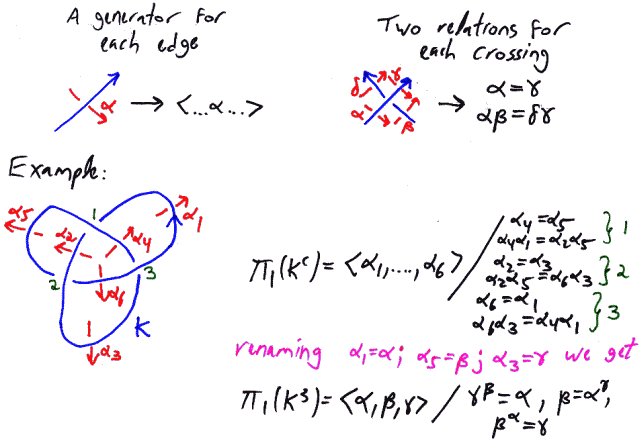 A generator for
each edge
α → <...α...>
Two relations for
each crossing
δ γ
α β
→ α = γ
αβ = δγ
Example:
α5 1 α1
α2 α4
2 3
α6
K
α3
π1(K^c) = <α1,....,α6> /
α4 = α5
α4α1 = α2α5 } 1
α2 = α3
α2α5 = α6α3 } 2
α6 = α1
α6α3 = α4α1 } 3
renaming α1=α; α5=β; α3=γ we get
π1(K^3) = <α,β,γ> / γ^β = α, β = α^γ,
β^α = γ